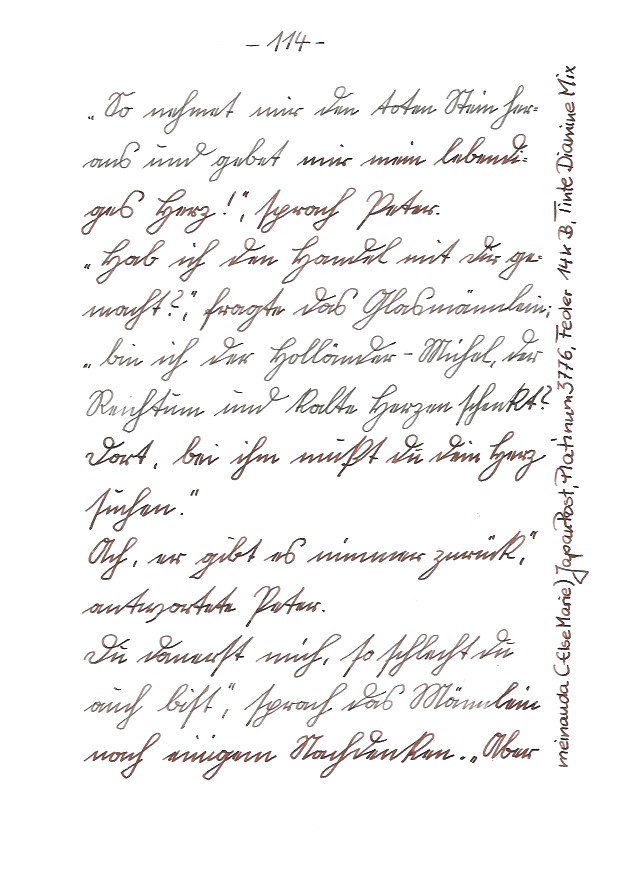 – 114 –
„So nehmet mir den toten Stein her=
aus und gebet mir mein lebendi=
ges Herz!", sprach Peter.
„Hab ich den Handel mit dir ge=
macht?", fragte das Glasmännlein;
„bin ich der Holländer-Michel, der
Reichtum und kalte Herzen schenkt?
Dort, bei ihm mußt du dein Herz
suchen."
Ach, er gibt es nimmer zurück,"
antwortete Peter.
Du dauerst mich, so schlecht du
auch bist", sprach das Männlein
nach einigem Nachdenken. „Aber
meinauda (-ElseMarie) JapanPost, Platinum 3776, Feder 14k B, Tinte Diamine Mix